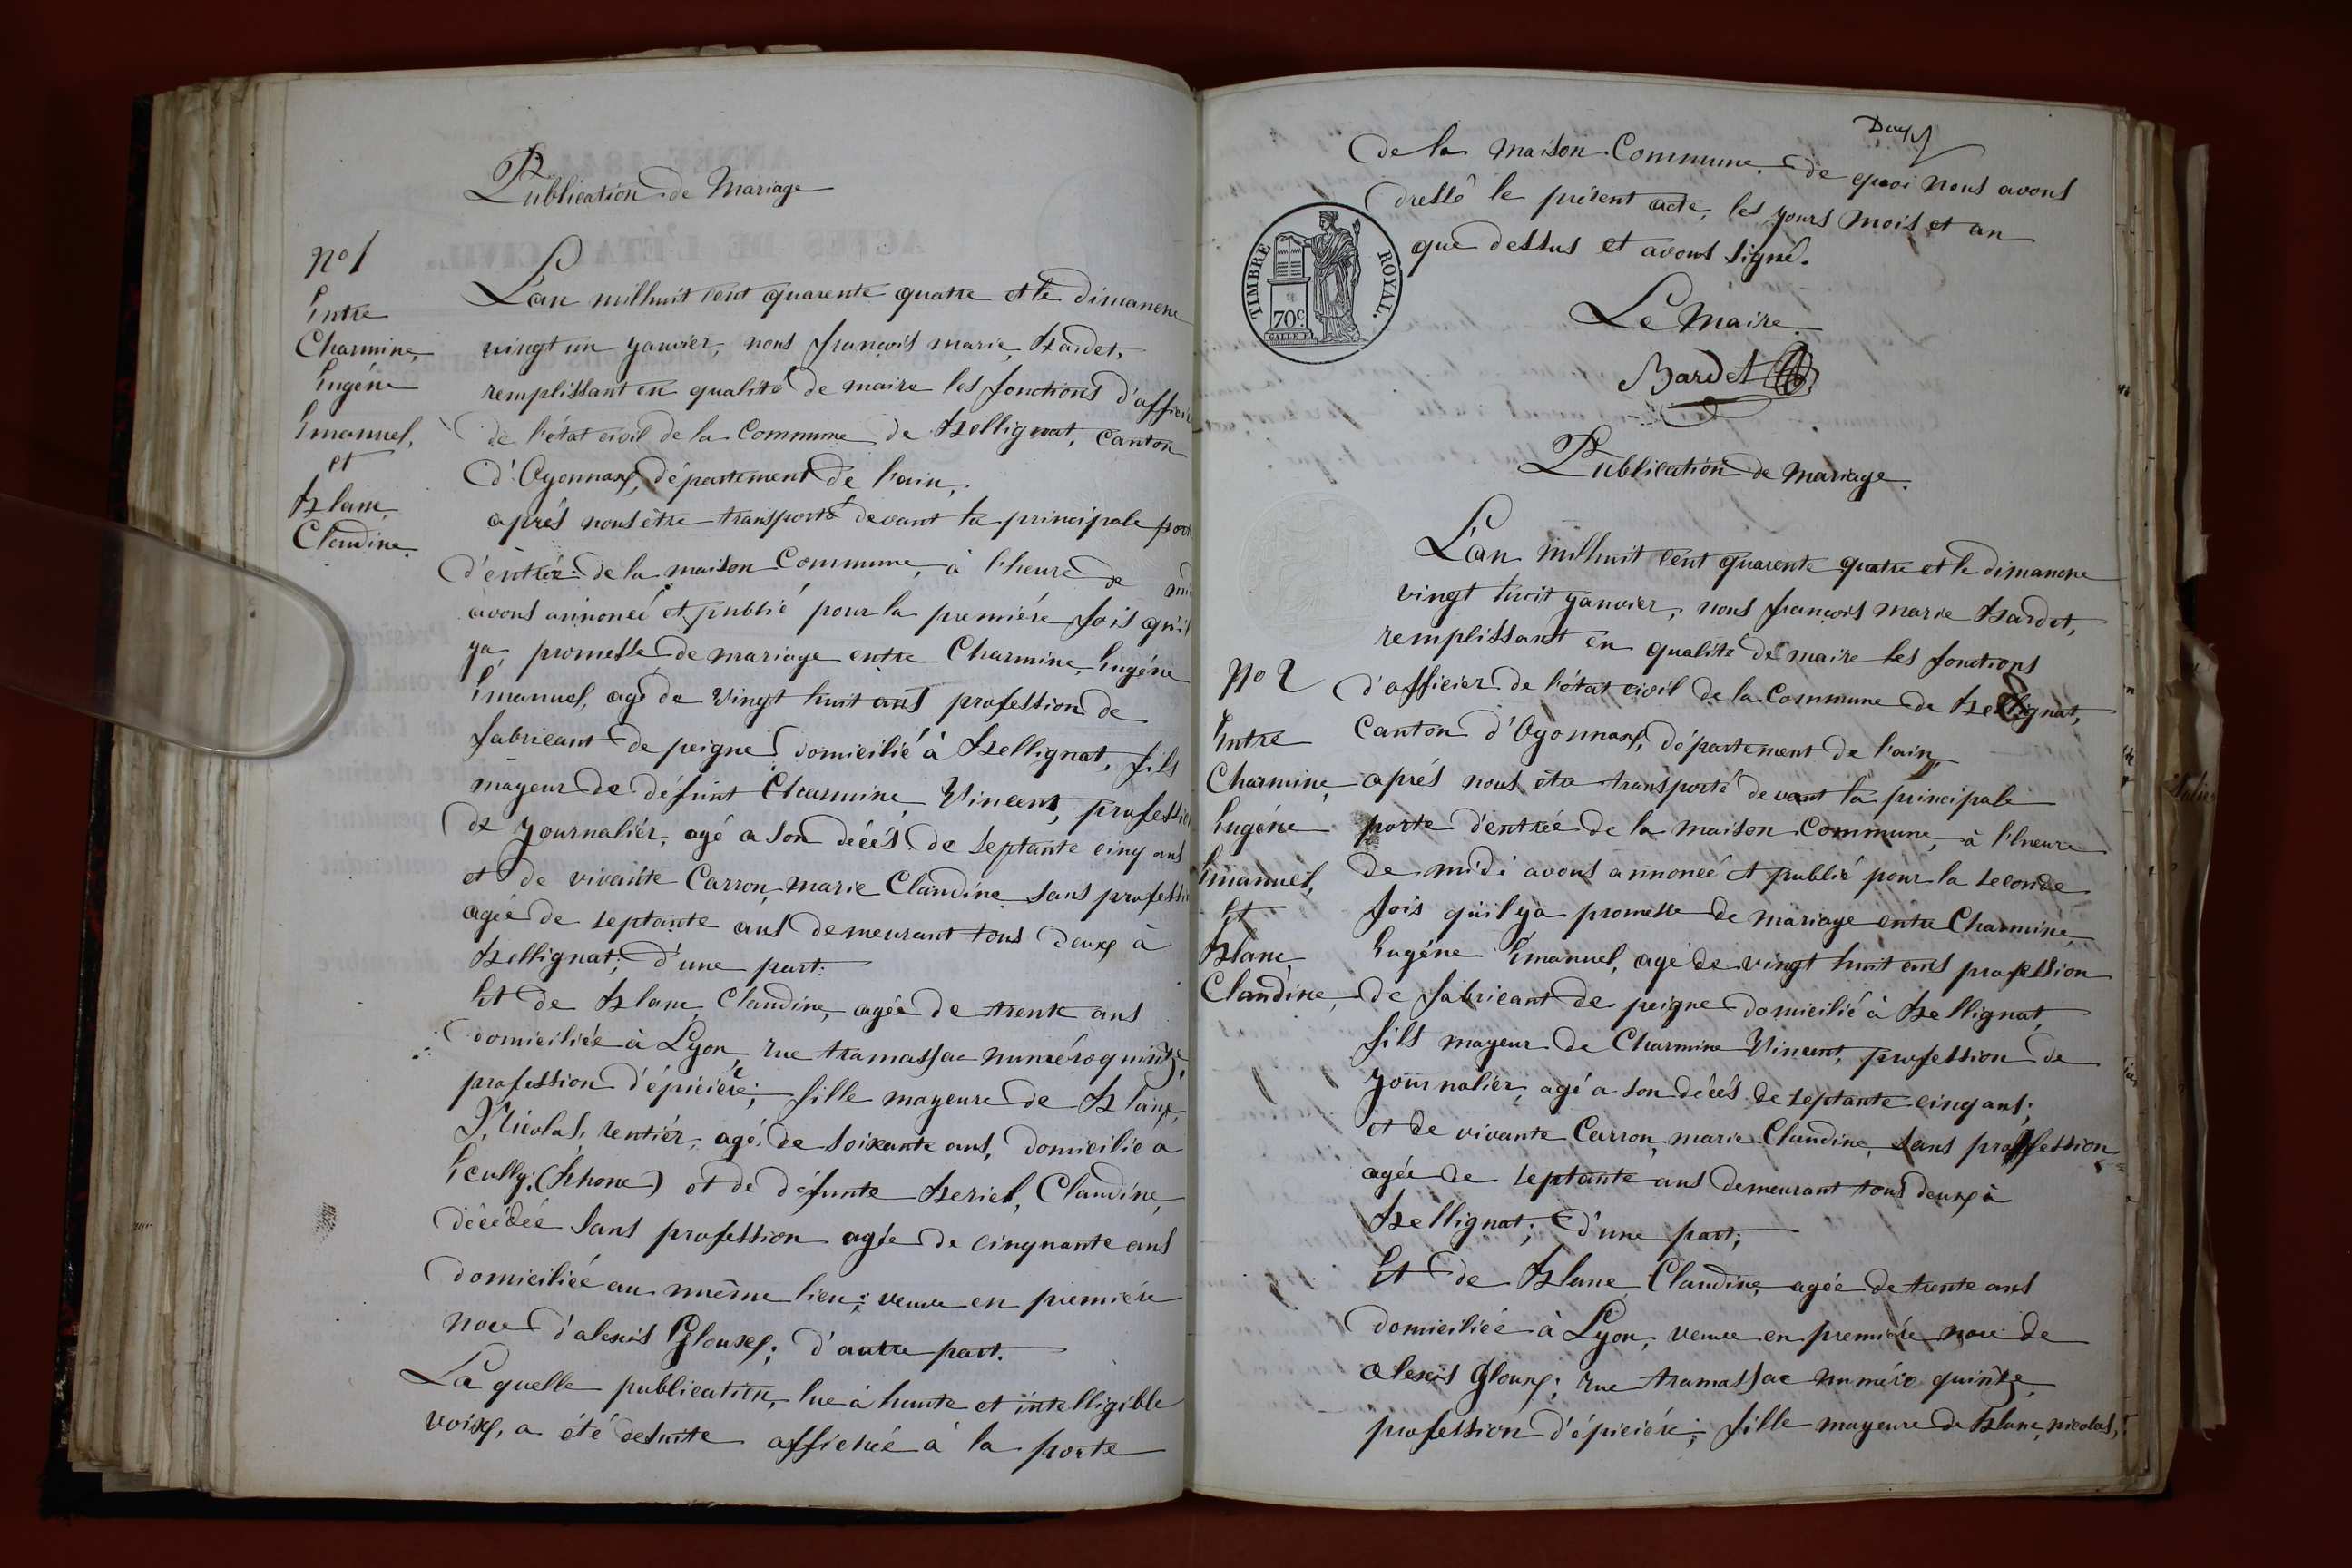 Publication de Mariage
No 1
Entre
Charmine,
Eugéne
Emanuel,
et
Blanc,
Claudine.
L'an milhuit cent quarente quatre et le dimanche
vingt un janvier, nous françois marie Bardet,
remplissant en qualité de maire les fonctions d'officier
de l'état civil de la Commune de Bellignat, Canton
d'Oyonnax, département de l'ain,
aprés nous être transporté devant la principale porte
d'entrée de la maison Commune, à l'heure de mi
avons annoncé et publié pour la premiére fois qu'il
ya promesse de mariage entre Charmine, Eugéne
Emanuel, agé de vingt huit ans profession de
fabricant de peigne domicilié à Bellignat, fils
mayeur de défunt Charmine, Vincent, profession
de journaliér, agé a son décés de septante cinq ans
et de vivante Carron, marie Claudine sans professi
agée de septante ans demeurant tous deux à
Bellignat; d'une part:
Et de Blanc, Claudine, agée de trente ans
domiciliée à Lyon, rue tramassac numéro quinze,
profession d'épiciére; fille mayeure de Blanc,
Nicolas, rentiér, agé de soixante ans, domicilié a
Ecully; (Rhone) et de défunte Beriel, Claudine,
décédée sans profession agée de cinquante ans
domiciliée au même lieu; veuve en premiére
noce d'alexis Gloux; d'autre part.
La quelle publication, lue à haute et intelligible
voix, a été desuite affichée à la porte
Deux
de la maison Commune. de quoi nous avons
dressé le présent acte, les jours mois et an
que dessus et avons signé.
TIMBRE ROYAL.
70c
Le Maire.
Bardet
Publication de Mariage.
L'an milhuit cent quarente quatre et le dimanche
vingt huit janvier, nous françois marie Bardet,
remplissant en qualité de maire les fonctions
No 2
d'officier de l'état civil de la Commune de Bellignat,
Entre
Canton d'Oyonnax, département de l'ain,
Charmine,
aprés nous être transporté devant la principale
Eugéne
porte d'entrée de la maison Commune, à l'heure
Emanuel,
de midi avons annoncé et publié pour la seconde
Et
fois qu'il ya promesse de mariage entre Charmine,
Blanc,
Eugéne Emanuel, agé de vingt huit ans profession
Claudine,
de fabricant de peigne domicilié à Bellignat,
fils mayeur de Charmine Vincent, profession de
journaliér, agé a son décés de septante cinq ans;
et de vivante Carron, marie Claudine, sans proffession
agée de septante ans demeurant tous deux à
Bellignat; d'une part;
Et de Blanc Claudine, agée de trente ans
domiciliée à Lyon, veuve en premiére noce de
alexis Gloux; rue tramassac numéro quinze,
profession d'épiciére; fille mayeure de Blanc, nicolas,